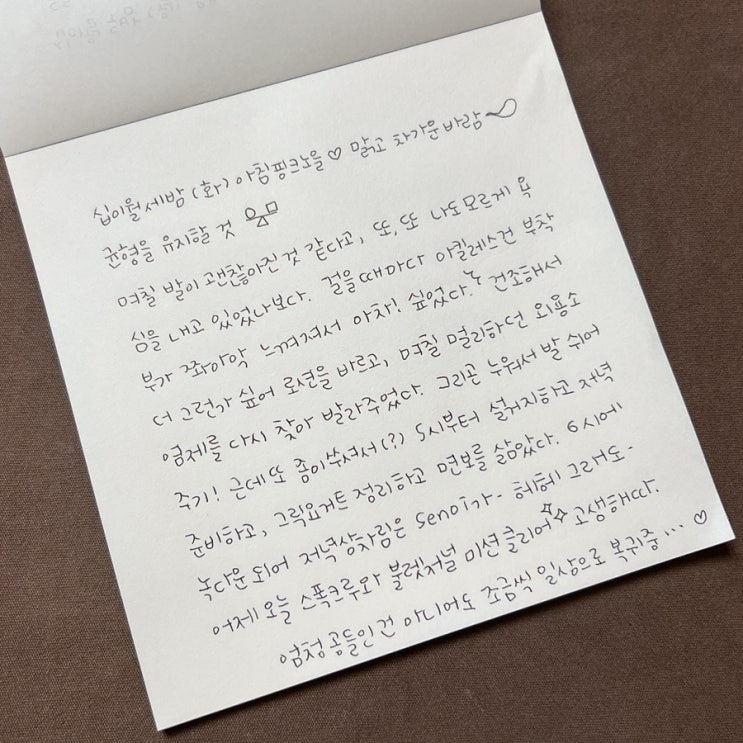 십이월세밤 (화) 아침핑크노을♡ 맑고 차가운바람
균형을 유지할 것
며칠 발이 괜찮아진것 같다고, 또, 또 나도모르게 욕
심을 내고 있었나보다. 걸을때마다 아킬레스건 부착
부가 쫘아악 느껴져서 아차! 싶었다. 건조해서
더 그런가 싶어 로션을 바르고, 며칠 멀리하던 외용소
염제를 다시 찾아 발라주었다. 그리곤 누워서 발 쉬어
주기! 근데또 좀이쑤셔서(?) 5시부터 설거지하고 저녁
준비하고, 그릭요거트 정리하고 면보를 삶았다. 6시에
녹다운되어 저녁상차림은 senoi가- 헤헤 그래도-
어제오늘 스폭크루와 불렛저널 미션클리어✧✧ 고생해따.
엄청공들인건 아니어도 조금씩 일상으로 복귀중... ♡